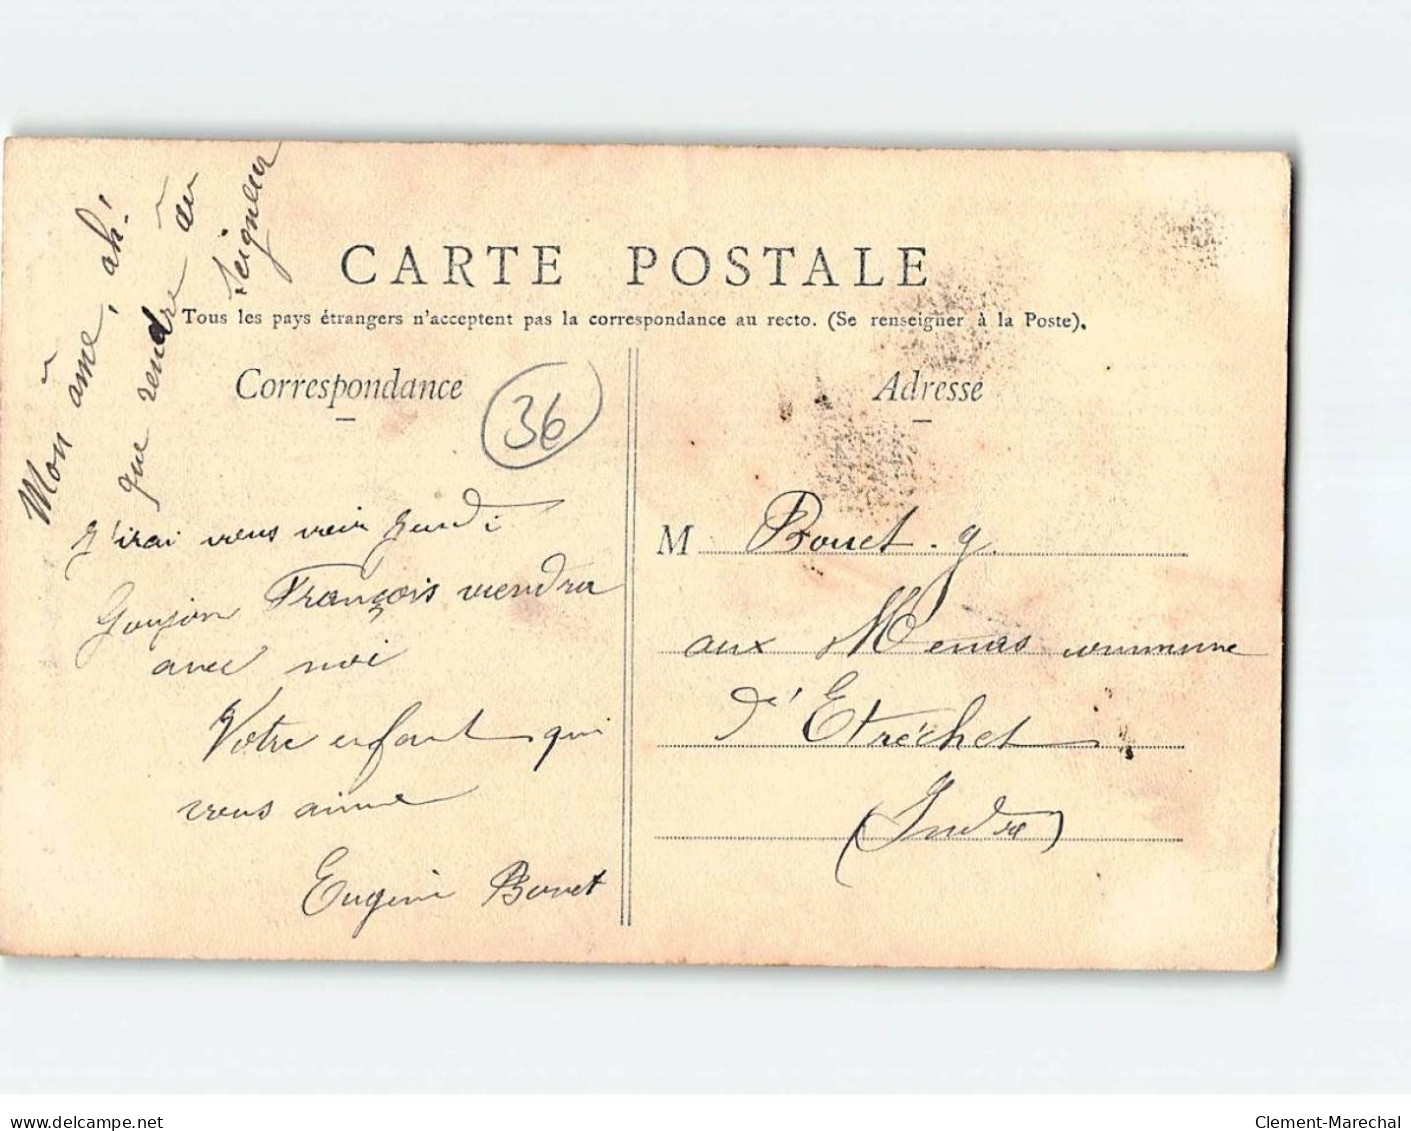 Mon âme, ah!
que rendre au
Seigneur
CARTE POSTALE
Tous les pays étrangers n'acceptent pas la correspondance au recto. (Se renseigner à la Poste).
Correspondance
36
J'irai vous voir Jeudi
Goujon François viendra
avec moi
Votre enfant qui
vous aime
Eugéni Bouet
Adresse
M Bouet . g.
aux Menas commune
d'Etréchet
(Indre)
delcampe.net
Clement-Marechal